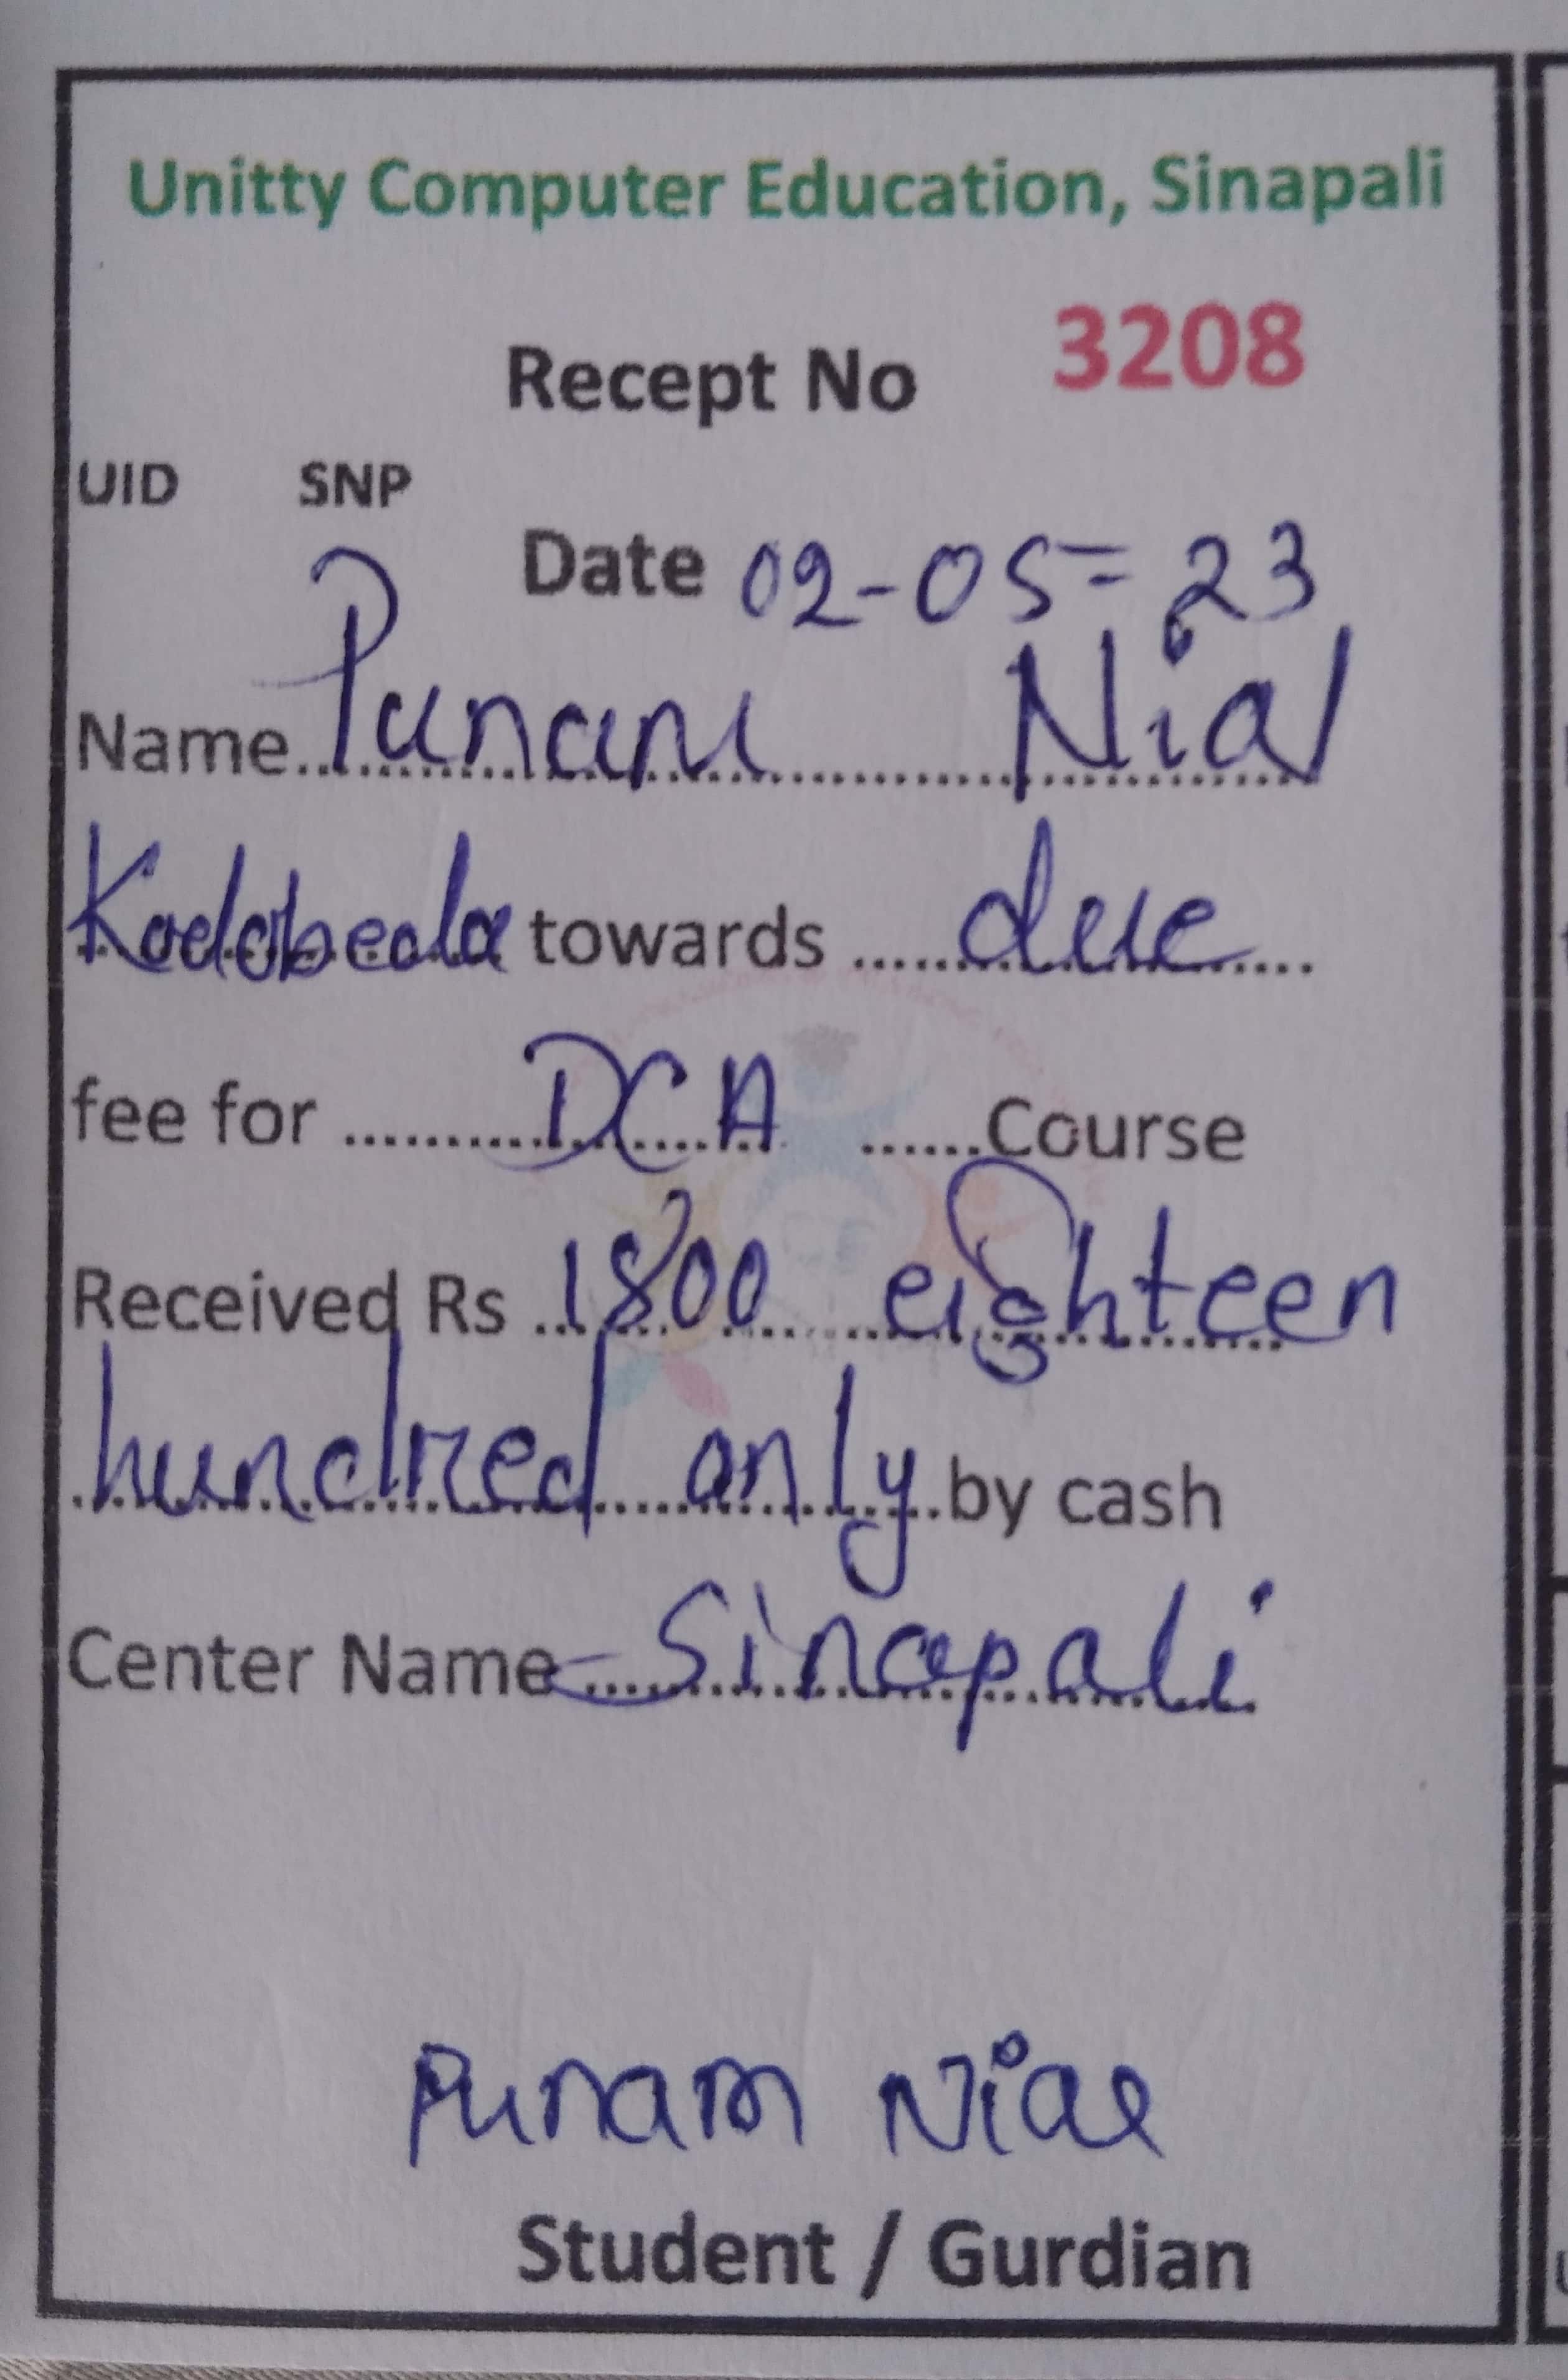 Unitty Computer Education, Sinapali
Recept No 3208
UID SNP
Date 02-05-23
Name Punam Nial
Kadobeda towards due
fee for DCA Course
Received Rs 1800 eighteen
hundred only by cash
Center Name Sinapali
Punam Nial
Student / Gurdian